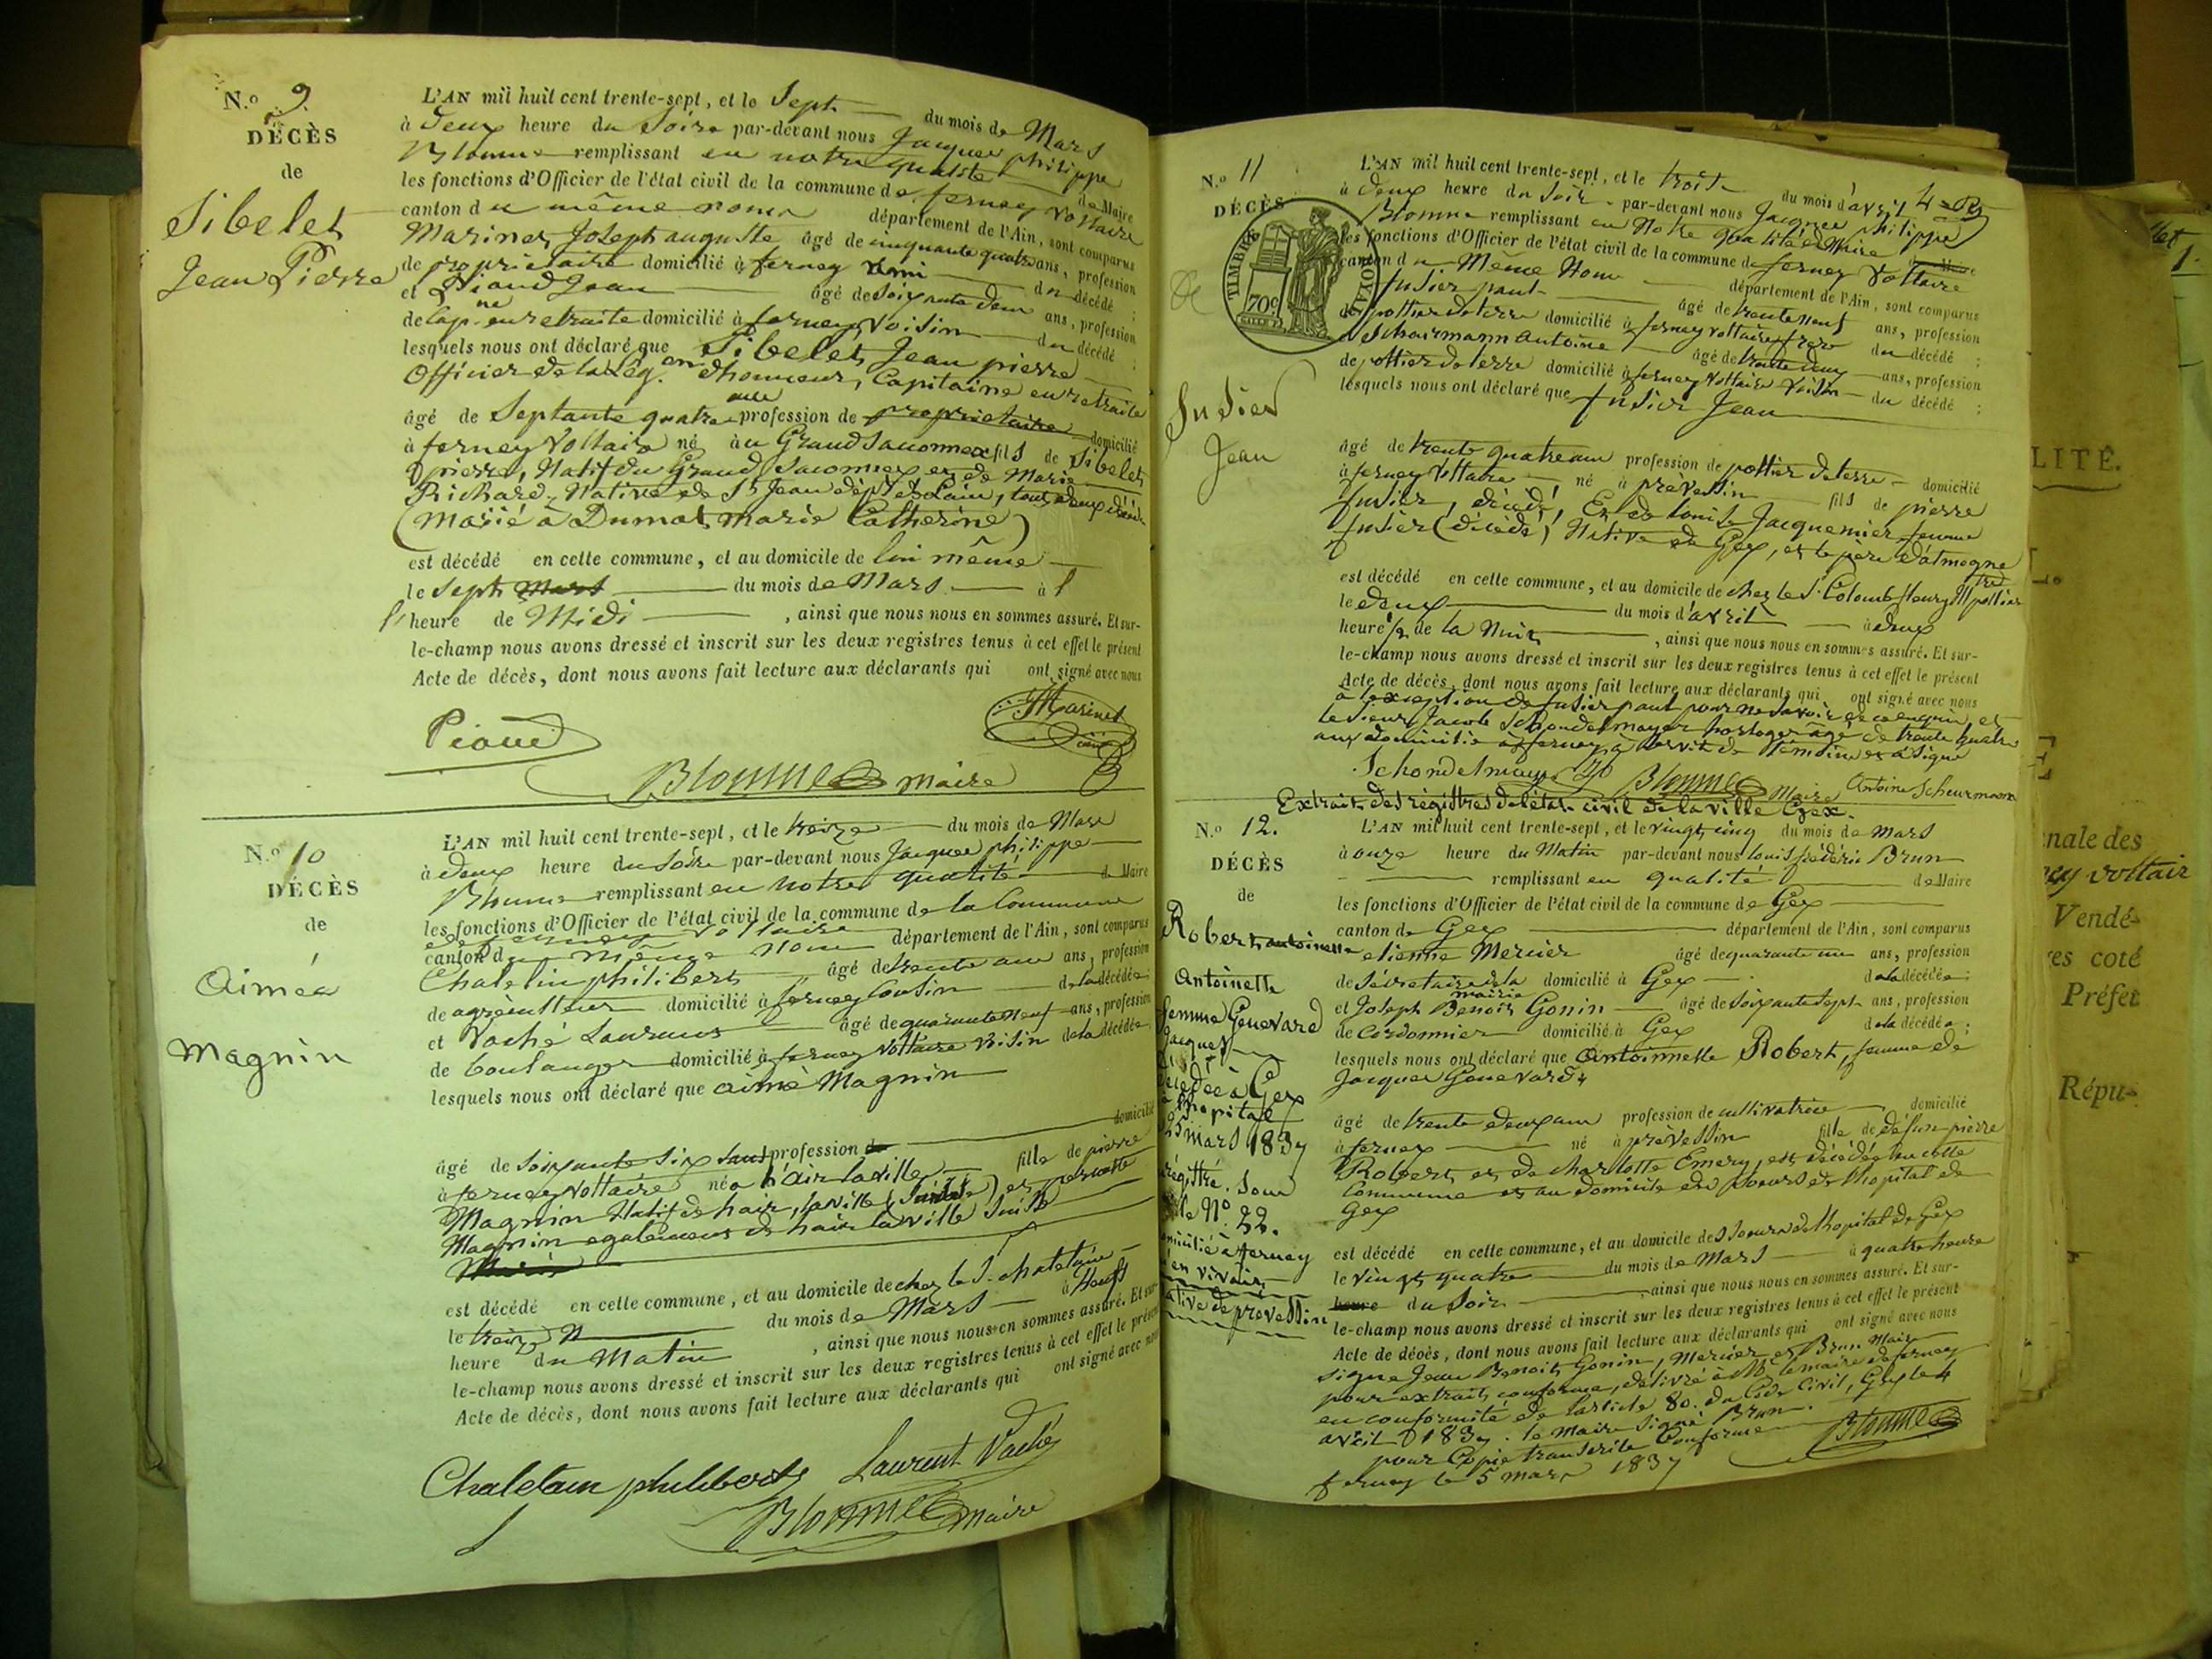 N.º 9.
DÉCÈS
de
Sibelet
Jean Pierre
L'AN mil huit cent trente-sept, et le Sept du mois de Mars
à deux heure du Soire par-devant nous Jacques philippe
Blomme remplissant en notre qualité de Maire
les fonctions d'Officier de l'état civil de la commune de ferney Voltaire
canton du même nom département de l'Ain, sont comparus
Marinet Joseph auguste âgé de cinquante quatre ans, profession
de propriétaire domicilié à ferney ami du décédé ;
et Jean âgé de soixante deux ans, profession
de Cap.ne en retraite domicilié à ferney, Voisin du décédé ;
lesquels nous ont déclaré que Sibelet, Jean pierre
Officier de la Lég.on d'honneur, Capitaine en retraite
âgé de Septante quatre profession de propriétaire domicilié
à ferney Voltaire né au Grand Saconnex fils de Sibelet
pierre, Natif du Grand Saconnex et de Marie
Richard, Native de St Jean dépt de l'ain, tous deux décédés
(Marié à Dumat, Marie Catherine)
est décédé en cette commune, et au domicile de lui même
le Sept Mars du mois de Mars à l
l'heure de Midi , ainsi que nous nous en sommes assuré. Et sur-
le-champ nous avons dressé et inscrit sur les deux registres tenus à cet effet le présent
Acte de décès, dont nous avons fait lecture aux déclarants qui ont signé avec nous
Marinet
Blomme maire
N.º 10
DÉCÈS
de
Aimée
Magnin
L'AN mil huit cent trente-sept, et le treize du mois de Mars
à deux heure du Soire par-devant nous Jacques philippe
Blomme remplissant en notre qualité de Maire
les fonctions d'Officier de l'état civil de la commune de la Commune
de ferney Voltaire
canton du même nom département de l'Ain, sont comparus
Chatelin philibert âgé de trente ans, profession
de agriculteur domicilié à ferney Cousin de la décédée ;
et Vaché Laurent âgé de quarante neuf ans, profession
de boulanger domicilié à ferney Voltaire Voisin de la décédée
lesquels nous ont déclaré que aimé Magnin
domicilié
âgé de Soixante Six Sans profession de
à ferney Voltaire née à hair la ville fille de pierre
Magnin Natif de hair, la ville (Suisse) et pernette
Magnin egalement de hair la ville Suisse
est décédé en cette commune, et au domicile de chez le S. chatelain
le treize du mois de Mars à Neuf
heure du Matin , ainsi que nous nous en sommes assuré. Et sur-
le-champ nous avons dressé et inscrit sur les deux registres tenus à cet effet le présent
Acte de décès, dont nous avons fait lecture aux déclarants qui ont signé avec nous
Chaletain philibert Laurent Vaché
Blomme maire
N.º 11
DÉCÈS
TIMBRE ROYAL
70c
Jusier
Jean
L'AN mil huit cent trente-sept, et le trois du mois d'avril
à deux heure du Soir par-devant nous Jacques philippe
Blomme remplissant en Notre qualité de Maire de Maire
les fonctions d'Officier de l'état civil de la commune de ferney Voltaire
canton du Même Nom département de l'Ain, sont comparus
Jusier paul âgé de trente neuf ans, profession
de pottier de terre domicilié à ferney Voltaire frere du décédé ;
et Scheurmann Antoine âgé de trente deux ans, profession
de pottier de terre domicilié à ferney Voltaire Voisin du décédé ;
lesquels nous ont déclaré que Jusier Jean
âgé de trente quatre ans profession de pottier de terre domicilié
à ferney Voltaire né à prevessin fils de pierre
Jusier, décédé, Et de louise Jacquemier femme
Jusier (décédé) Native de Gex, et le père d'atmogne
est décédé en cette commune, et au domicile de chez le S. Colomb fleury M.tre pottier
le deux du mois d'avril à deux
heure ½ de la Nuit , ainsi que nous nous en sommes assuré. Et sur-
le-champ nous avons dressé et inscrit sur les deux registres tenus à cet effet le présent
Acte de décès, dont nous avons fait lecture aux déclarants qui ont signé avec nous
à l'exception de Jusier paul pour ne savoir de ce enquis, et
le Sieur Jacob Schondelmayer horloger agé de trente quatre
ans domicilié à ferney, a servit de Témoin et a Signé
Blomme Maire Antoine Scheurmann
Extrait des régistres de létat civil de la ville Gex.
N.º 12.
DÉCÈS
de
Robert antoinette
Antoinette
femme Genevard
Jacques
décédée à Gex
à l'hopital
25 mars 1837
régistré Sous
le Nº 22.
domicilié à ferney
en vivait
native de prevessin
L'AN mil huit cent trente-sept, et le vingt cinq du mois de Mars
à onze heure du Matin par-devant nous louis frédéric Brun
remplissant en qualité de Maire
les fonctions d'Officier de l'état civil de la commune de Gex
canton de Gex département de l'Ain, sont comparus
etienne Mercier âgé de quarante un ans, profession
de Sécretaire de la mairie domicilié à Gex de la décédée ;
et Joseph Benoit Gonin âgé de Soixante Sept ans, profession
de Cordonnier domicilié à Gex de la décédée ;
lesquels nous ont déclaré que Antoinette Robert, femme de
Jacques Genevard
âgé de trente deux ans profession de cultivatrice domicilié
à ferney né à prévessin fille de défunt pierre
Robert et de charlotte Emery, est décédée en cette
Commune et au domicile des soeurs de l'hopital de
Gex
est décédé en cette commune, et au domicile des Soeurs de l'hopital de Gex
le vingt quatre du mois de Mars à quatre heure
heure du Soir ainsi que nous nous en sommes assuré. Et sur-
le-champ nous avons dressé et inscrit sur les deux registres tenus à cet effet le présent
Acte de décès, dont nous avons fait lecture aux déclarants qui ont signé avec nous
signé Jean Benoit Gonin, Mercier et Brun Maire
pour extrait conforme, délivré à Mr le maire de ferney
en conformité de l'article 80. du Code Civil, Gex le 4
avril 1837. le Maire Signé Brun.
pour Copie transcrite Conforme
ferney le 5 mars 1837
Blomme
LITÉ.
nale des
voltair
Vendé-
res coté
Préfet
Répu-